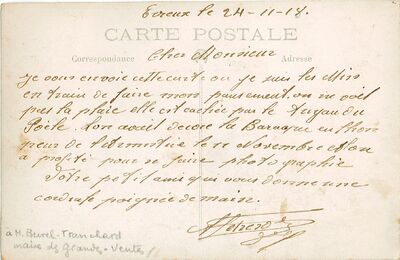 Evreux le 24-11-18.
CARTE POSTALE
Correspondance Adresse
Cher Monsieur
Je vous envoie cette carte ou je suis les
en train de faire mon pansement on ne voit
pas la plaie elle est cachée par le Tuyau du
Poële. L'on avait decoré la Baraque en l'hon
neur de l'Armistice le 11 Novembre
a profité pour se faire photographier
Votre petit ami qui vous donne une
cordiale poignée de main.
à M. Burel-Tranchard
maire de Grandes-Ventes